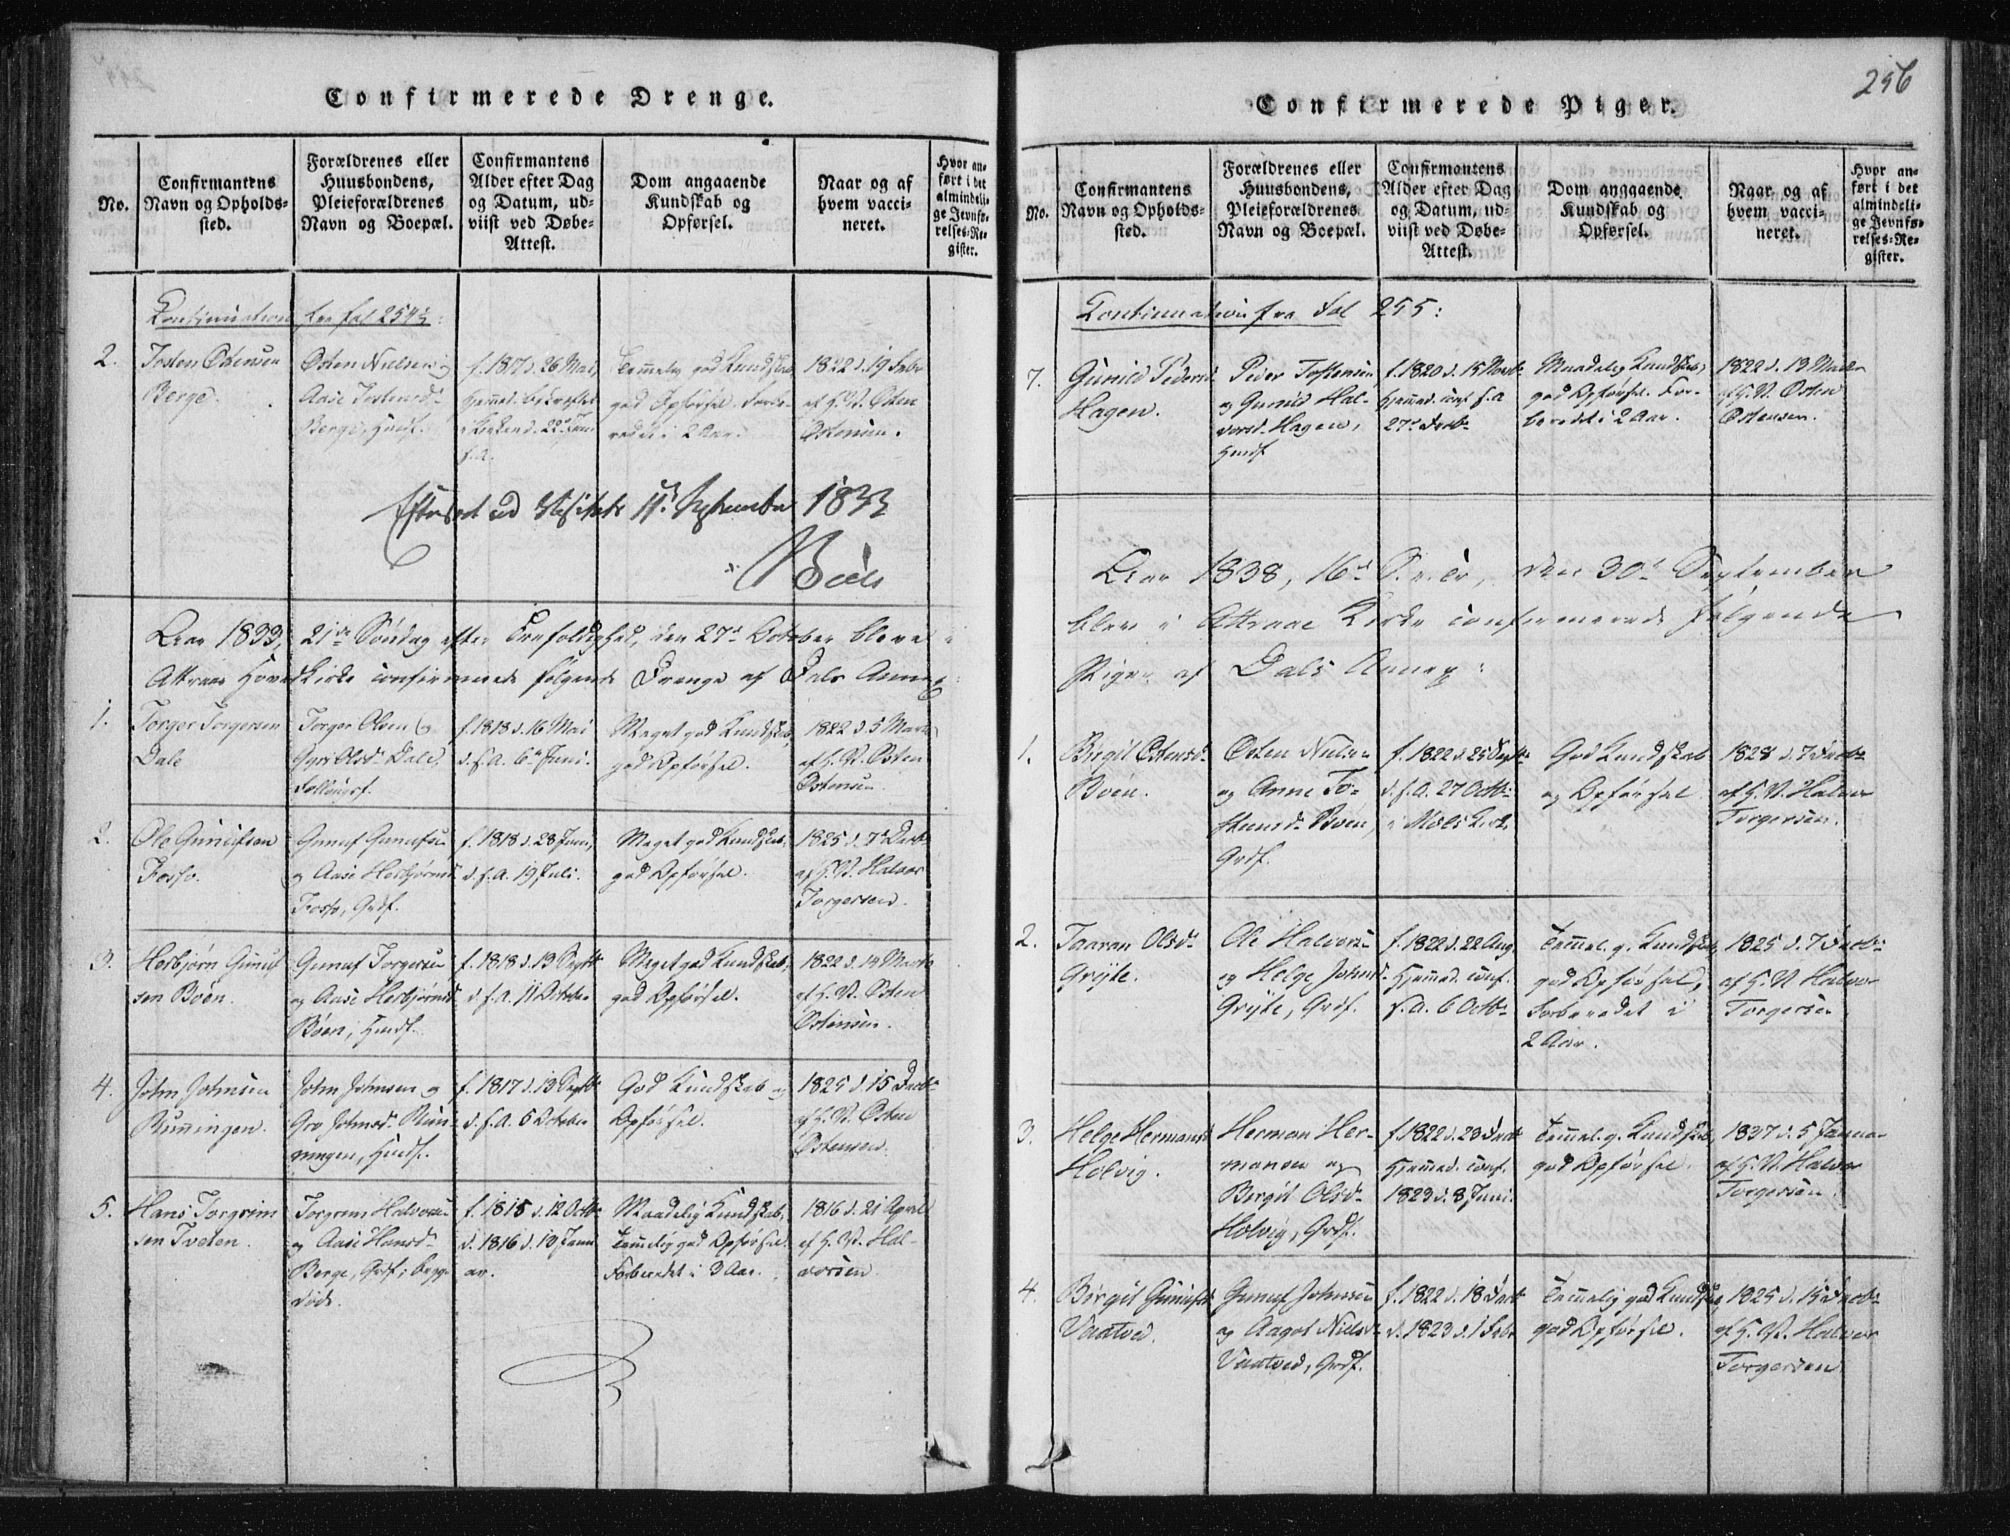 Confirmerede Drenge.
No.
Confirmantens
Navn og Opholds-
sted.
Forældrenes eller
Huusbondens,
Pleieforældrenes
Navn og Boepæl.
Confirmantens
Alder efter Dag
og Datum, ud-
viist ved Døbe-
Attest.
Dom angaaende
Kundskab og
Opførsel.
Naar og af
hvem vacci-
neret.
Hvor an-
ført i det
almindeli-
ge Jevnfø-
relses-Re-
gister.
Continuation fra fol 254
2.
Tosten Østensen
Berge.
Østen Nielsen
Aase Tostensd.
Berge, Huusf.
f. 1817 d. 26 Mai,
22 Juni
s. A.
Temmelig god Kundskab
god Opførsel. Forbe-
redet i 2 Aar.
1822 d. 19 Febr
af H. N. Østen
Østensen.
Efterseet ved Visitats 11. September 1833
Aar 1833, 21de Søndag efter Trefoldighed, den 27de October bleve i
Attraae Hovedkirke confirmerede følgende Drenge af Dals Annex:
1.
Torger Torgersen
Dale
Torger Olsen og
Olsd. Dale,
f. 1818 d. 16 Mai
d. s. A. 6te Juni.
Meget god Kundskab,
god Opførsel.
1822 d. 5 Marts
af H. N. Østen
Østensen
2.
Ole Gunufsen
Fosso.
Gunuf Gunufsen
og Aase Herbjørnsd
Fosso, Grdf.
f. 1818 d. 28 Juni,
d. s. A. 19 Juli.
Meget god Kundskab,
god Opførsel.
1825 d. 7de Decbr
af H. N. Halvor
Torgersen.
3.
Herbjørn Gunuf
sen Bøen.
Gunuf Torgersen
og Aase Herbjørnsd
Bøen, Huusf.
f. 1818 d. 13 Septbr
d. s. A. 11 October
Meget god Kundskab,
god Opførsel.
1822 d. 14 Marts
af H. N. Østen
Østensen.
4.
John Johnsen
Rummingen.
John Johnsen og
Gro Johnsd. Rum
mingen, Huusf.
f. 1817 d. 13 Septbr
d. s. A. 5 October
God Kundskab og
Opførsel.
1825 d. 15 Decbr
af H. N. Østen
Østensen.
5.
Hans Torgrim
sen Tveten.
Torgrim Halvorsen
og Aase Hansd
Berge, Grdf; begge
døde.
f. 1815 d. 12 Octbr
d. 1816 d. 13 Janu
ar.
Maadelig Kundskab,
temmelig god Opførsel.
Forberedet i 3 Aar.
1816 d. 21 April
af H. N. Hal-
vorsen.
256
Confirmerede Piger.
No.
Confirmantens
Navn og Opholds-
sted.
Forældrenes eller
Huusbondens,
Pleieforældrenes
Navn og Boepæl.
Confirmantens
Alder efter Dag
og Datum, ud-
viist ved Døbe-
Attest.
Dom angaaende
Kundskab og
Opførsel.
Naar og af
hvem vacci-
neret.
Hvor an-
ført i det
almindeli-
ge Jevnfø-
relses-Re-
gister.
Continuation fra Fol 255:
7.
Gunild Pedersd
Hagen.
Peder Tostensen
og Gunild Hal-
vorsd. Hagen,
Huusf
f. 1820 d. 15 Novbr
Hjemmed. conf. s. A
27de Decbr
Maadelig Kundskab,
god Opførsel. For-
beredt i 2 Aar.
1822 d. 19 Marts
af H. N. Østen
Østensen.
Aar 1838, 16de S. e. Tr., den 30te September
bleve i Attraae Kirke confirmerede følgende
Piger af Dals Annex:
1.
Birgit Østensd.
Bøen.
Østen Nielsen
og Anne To-
stensd. Bøen,
Grdf.
f. 1822 d. 25 Septbr
d. s. A. 27 Octbr
i Mæls Kirke
God Kundskab
og Opførsel.
1828 d. 7 Decbr
af H. N. Halvor
Torgersen.
2.
Taaran Olsd.
Gryte.
Ole Halvors.
og Helge Johnsd
Gryte, Grdf.
f. 1822 d. 22 Aug.
Hjemmed. conf.
s. A. 6 Octbr
Temmel. g. Kundskab,
god Opførsel,
Forberedet i
2 Aar.
1825 d. 7 Decbr
af H. N Halvor
Torgersen
3.
Helge Hermansd
Holvig.
Herman Her-
mansen og
Bergit Olsd.
Holvig, Grdf.
f. 1822 d. 23 Decbr
Hjemmed. conf.
1823 d. 8 Juni.
Temmel. g. Kundskab,
god Opførsel.
1837 d. 5 Januar
af H. N. Halvor
Torgersen.
4.
Birgit Gunufsd
Vaatved.
Gunuf Johnsen
og Aagot Nielsd.
Vaatved, Grdf.
f. 1822 d. 18 Decbr
d. 1823 d. 1 Febr
Temmelig god Kundskab,
god Opførsel.
1825 d. 15 Decbr
af H. N. Halvor
Torgersen